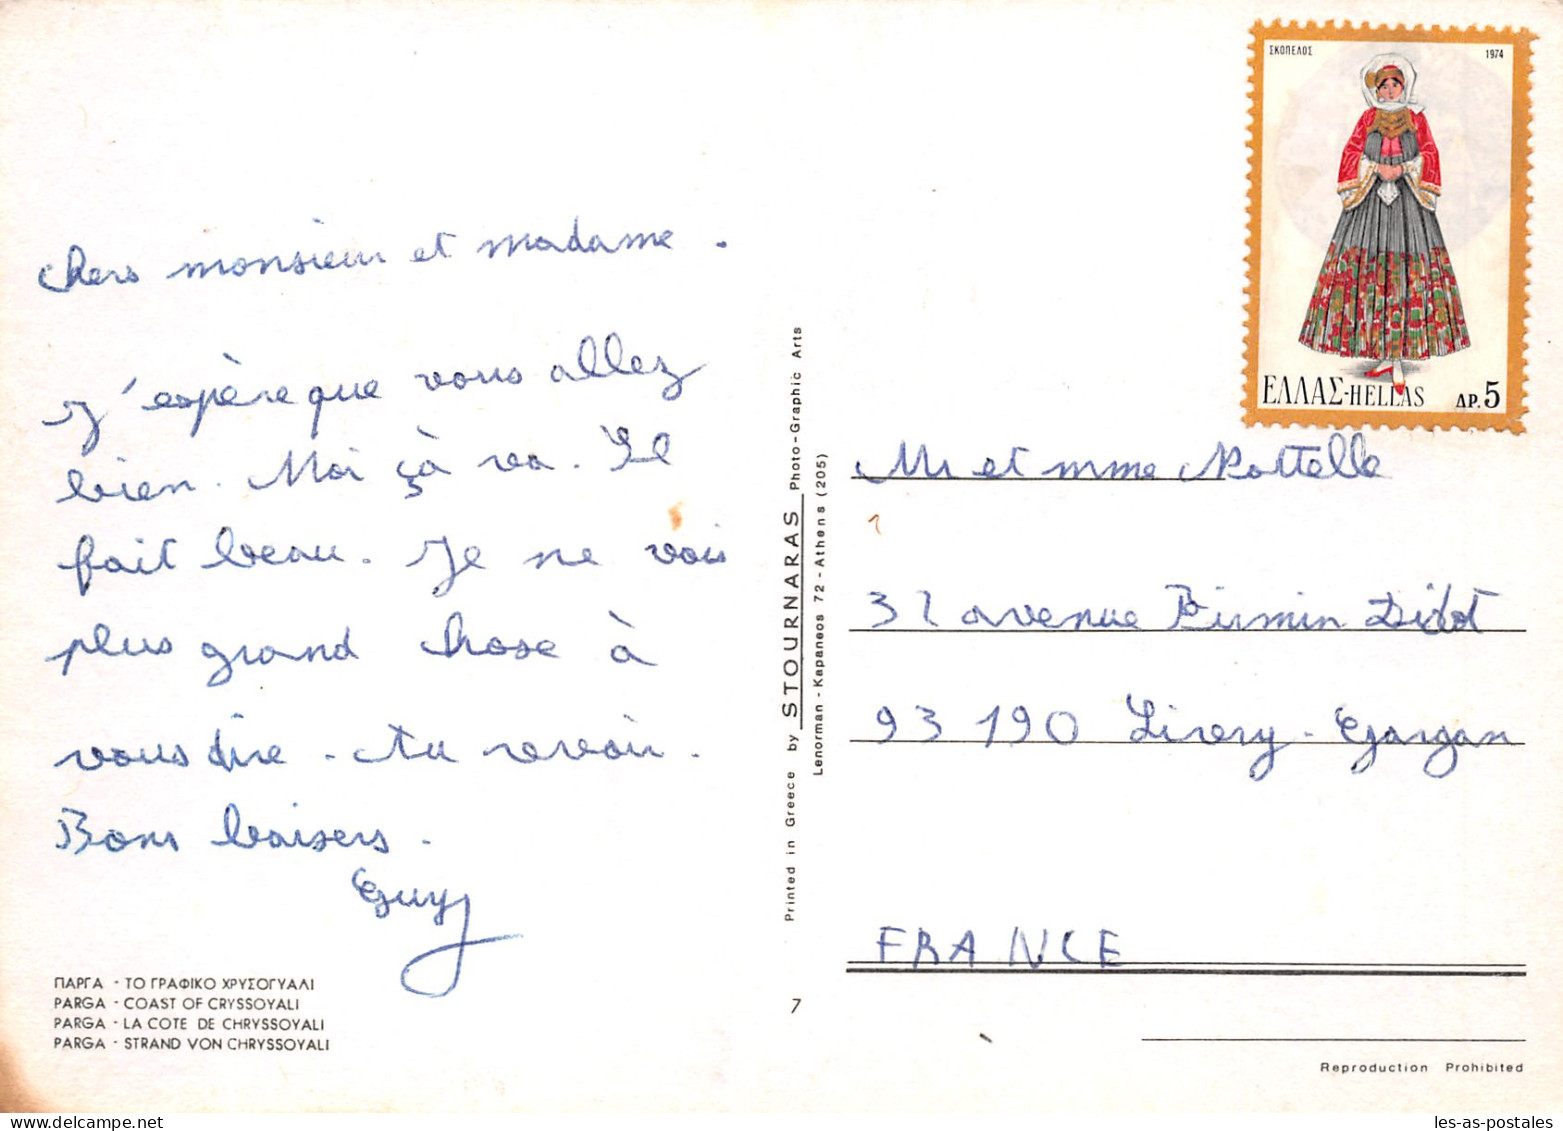 chers monsieur et madame.
J'espère que vous allez
bien. Moi çà va. Il
fait beau. Je ne vois
plus grand chose à
vous dire. Au revoir.
Bons baisers.
Guy
ΠΑΡΓΑ - ΤΟ ΓΡΑΦΙΚΟ ΧΡΥΣΟΓΥΑΛΙ
PARGA - COAST OF CRYSSOYALI
PARGA - LA COTE DE CHRYSSOYALI
PARGA - STRAND VON CHRYSSOYALI
Printed in Greece by STOURNARAS Photo-Graphic Arts
Lenorman - Kapaneos 72 - Athens (205)
7
ΣΚΟΠΕΛΟΣ 1974
ΕΛΛΑΣ-HELLAS ΔΡ. 5
Mr et mme
avenue Firmin Didot
93 190 Livry-Gargan
FRANCE
Reproduction Prohibited
les-as-postales